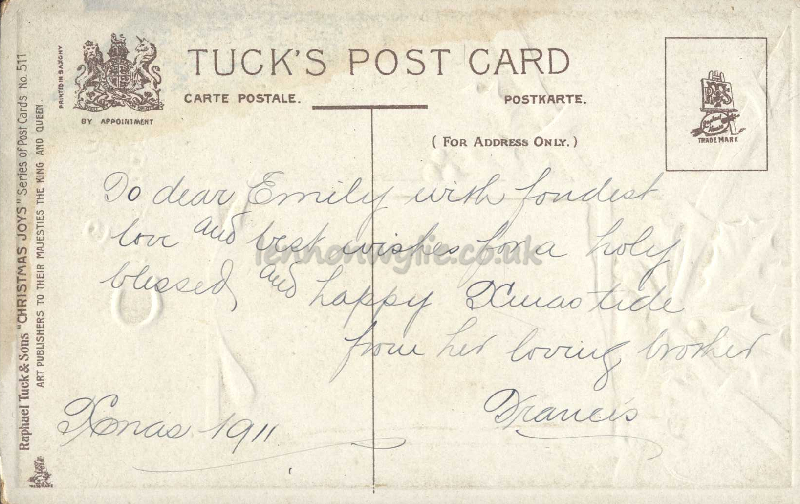 TUCK'S POST CARD
CARTE POSTALE.
POSTKARTE.
BY APPOINTMENT
PRINTED IN SAXONY
(FOR ADDRESS ONLY.)
TRADE MARK
Raphael Tuck & Sons "CHRISTMAS JOYS" Series of Post Cards No. 511
ART PUBLISHERS TO THEIR MAJESTIES THE KING AND QUEEN.
To dear Emily with fondest
love and best wishes for a holy
blessed, and happy Xmastide
from her loving brother
Francis
Xmas 1911
lennonwylie.co.uk